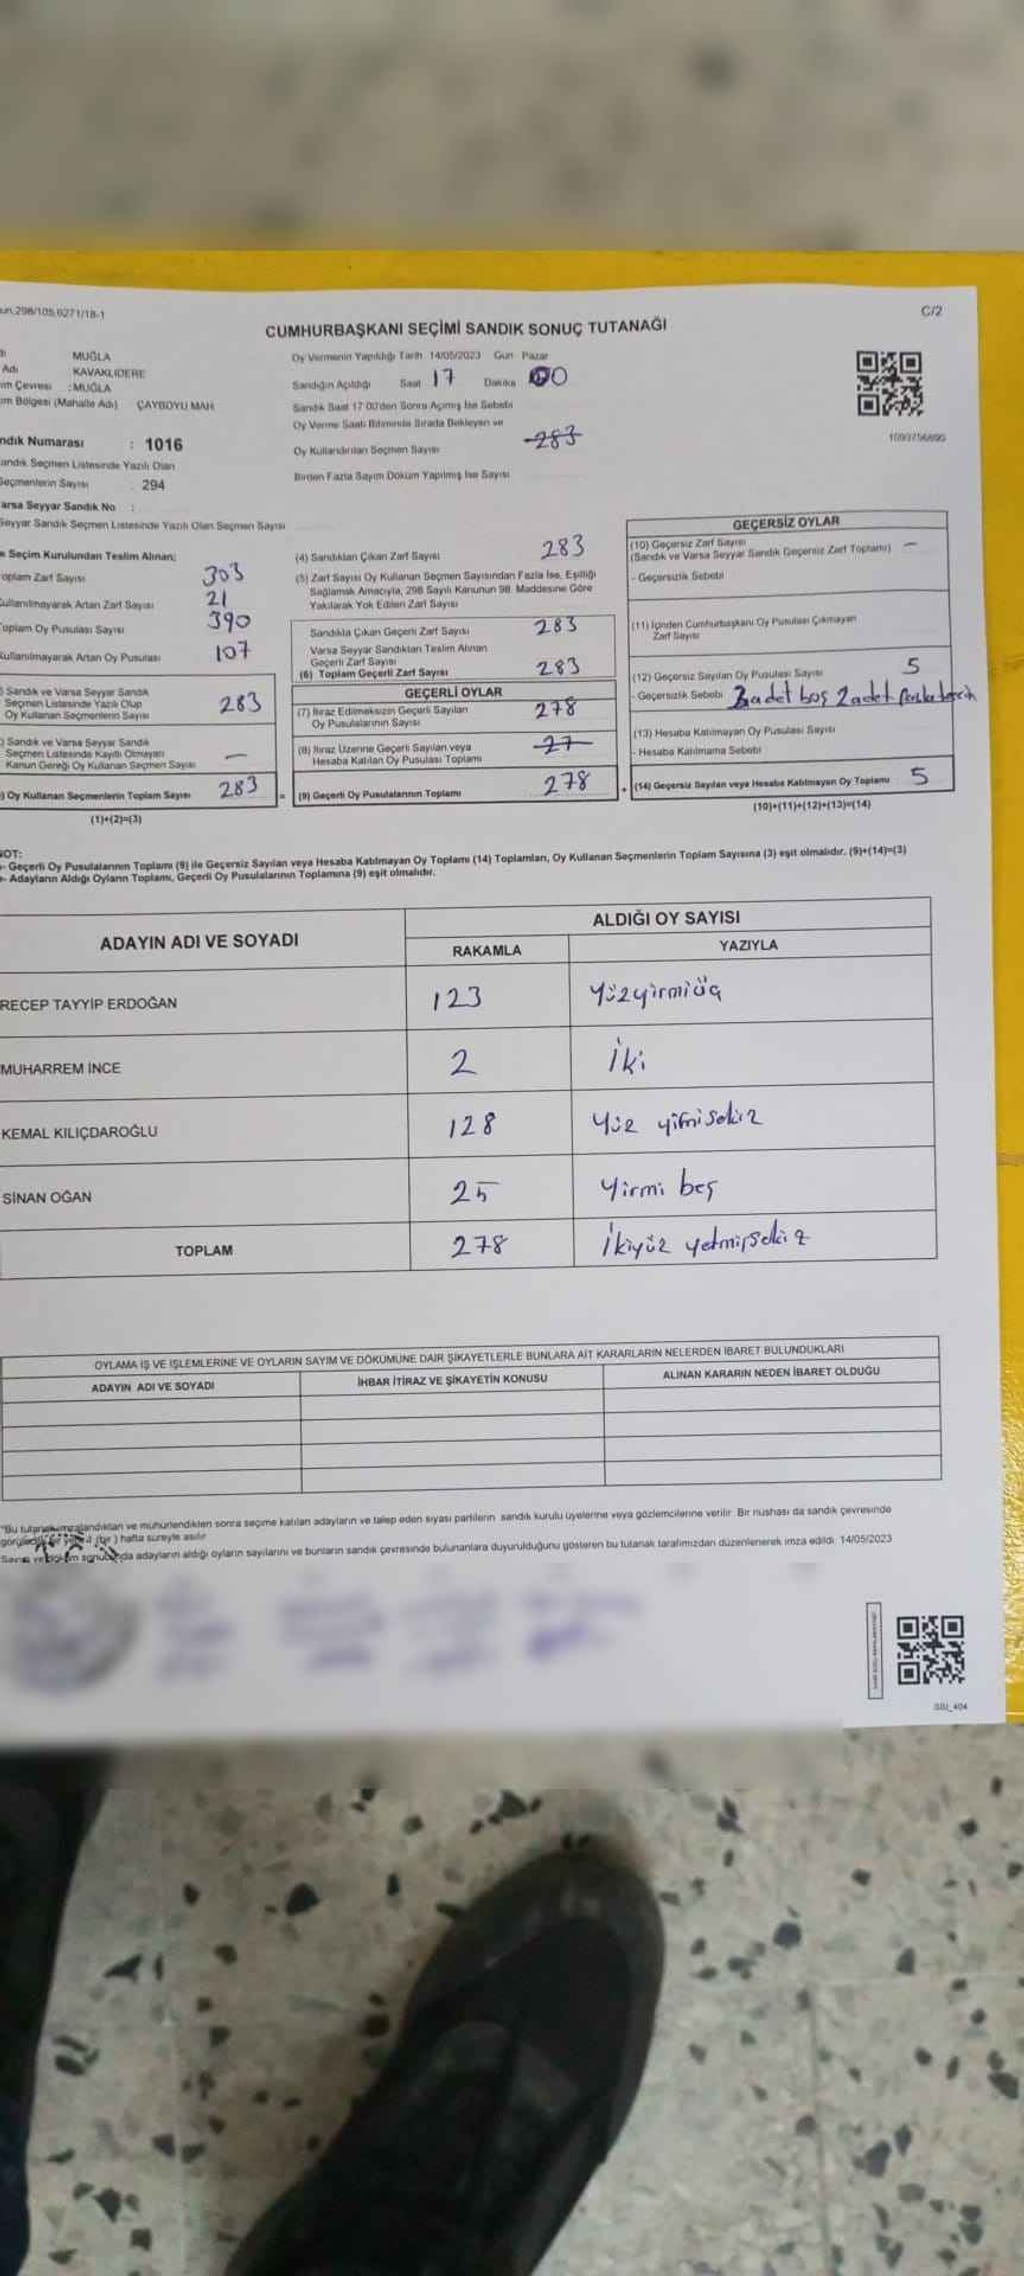 298/105,6271/18-1
C/2
CUMHURBAŞKANI SEÇİMİ SANDIK SONUÇ TUTANAĞI
MUĞLA
Adı KAVAKLIDERE
im Çevresi : MUĞLA
im Bölgesi (Mahalle Adı) ÇAYBOYU MAH.
ndık Numarası : 1016
andık Seçmen Listesinde Yazılı Olan
Seçmenlerin Sayısı 294
arsa Seyyar Sandık No :
Seyyar Sandık Seçmen Listesinde Yazılı Olan Seçmen Sayısı
Oy Vermenin Yapıldığı Tarih 14/05/2023 Gün Pazar
Sandığın Açıldığı Saat 17 Dakika 00
Sandık Saat 17:00'den Sonra Açılmış İse Sebebi
Oy Verme Saati Bitiminde Sırada Bekleyen ve
Oy Kullandırılan Seçmen Sayısı 283
Birden Fazla Sayım Döküm Yapılmış İse Sayısı
e Seçim Kurulundan Teslim Alınan;
oplam Zarf Sayısı 303
ullanılmayarak Artan Zarf Sayısı 21
oplam Oy Pusulası Sayısı 390
ullanılmayarak Artan Oy Pusulası 107
) Sandık ve Varsa Seyyar Sandık
Seçmen Listesinde Yazılı Olup
Oy Kullanan Seçmenlerin Sayısı 283
) Sandık ve Varsa Seyyar Sandık
Seçmen Listesinde Kayıtlı Olmayan
Kanun Gereği Oy Kullanan Seçmen Sayısı —
) Oy Kullanan Seçmenlerin Toplam Sayısı 283 =
(1)+(2)=(3)
(4) Sandıktan Çıkan Zarf Sayısı 283
(5) Zarf Sayısı Oy Kullanan Seçmen Sayısından Fazla İse, Eşitliği
Sağlamak Amacıyla, 298 Sayılı Kanunun 98. Maddesine Göre
Yakılarak Yok Edilen Zarf Sayısı
Sandıkta Çıkan Geçerli Zarf Sayısı 283
Varsa Seyyar Sandıktan Teslim Alınan
Geçerli Zarf Sayısı
(6) Toplam Geçerli Zarf Sayısı 283
GEÇERLİ OYLAR
(7) İtiraz Edilmeksizin Geçerli Sayılan
Oy Pusulalarının Sayısı 278
(8) İtiraz Üzerine Geçerli Sayılan veya
Hesaba Katılan Oy Pusulası Toplamı 27
(9) Geçerli Oy Pusulalarının Toplamı 278 +
GEÇERSİZ OYLAR
(10) Geçersiz Zarf Sayısı —
(Sandık ve Varsa Seyyar Sandık Geçersiz Zarf Toplamı)
- Geçersizlik Sebebi
(11) İçinden Cumhurbaşkanı Oy Pusulası Çıkmayan
Zarf Sayısı
(12) Geçersiz Sayılan Oy Pusulası Sayısı 5
- Geçersizlik Sebebi 3 adet boş 2 adet fazla tercih
(13) Hesaba Katılmayan Oy Pusulası Sayısı
- Hesaba Katılmama Sebebi
(14) Geçersiz Sayılan veya Hesaba Katılmayan Oy Toplamı 5
(10)+(11)+(12)+(13)=(14)
NOT:
- Geçerli Oy Pusulalarının Toplamı (9) ile Geçersiz Sayılan veya Hesaba Katılmayan Oy Toplamı (14) Toplamları, Oy Kullanan Seçmenlerin Toplam Sayısına (3) eşit olmalıdır. (9)+(14)=(3)
- Adayların Aldığı Oyların Toplamı, Geçerli Oy Pusulalarının Toplamına (9) eşit olmalıdır.
ADAYIN ADI VE SOYADI
ALDIĞI OY SAYISI
RAKAMLA YAZIYLA
RECEP TAYYİP ERDOĞAN 123 Yüzyirmiüç
MUHARREM İNCE 2 İki
KEMAL KILIÇDAROĞLU 128 Yüz yirmisekiz
SİNAN OĞAN 25 Yirmi beş
TOPLAM 278 İkiyüz yetmişsekiz
OYLAMA İŞ VE İŞLEMLERİNE VE OYLARIN SAYIM VE DÖKÜMÜNE DAİR ŞİKAYETLERLE BUNLARA AİT KARARLARIN NELERDEN İBARET BULUNDUKLARI
ADAYIN ADI VE SOYADI İHBAR İTİRAZ VE ŞİKAYETİN KONUSU ALINAN KARARIN NEDEN İBARET OLDUĞU
"Bu tutanak imzalandıktan ve mühürlendikten sonra seçime katılan adayların ve talep eden siyasi partilerin sandık kurulu üyelerine veya gözlemcilerine verilir. Bir nüshası da sandık çevresinde
hafta süreyle asılır
adayların aldığı oyların sayılarını ve bunların sandık çevresinde bulunanlara duyurulduğunu gösteren bu tutanak tarafımızdan düzenlenerek imza edildi. 14/05/2023